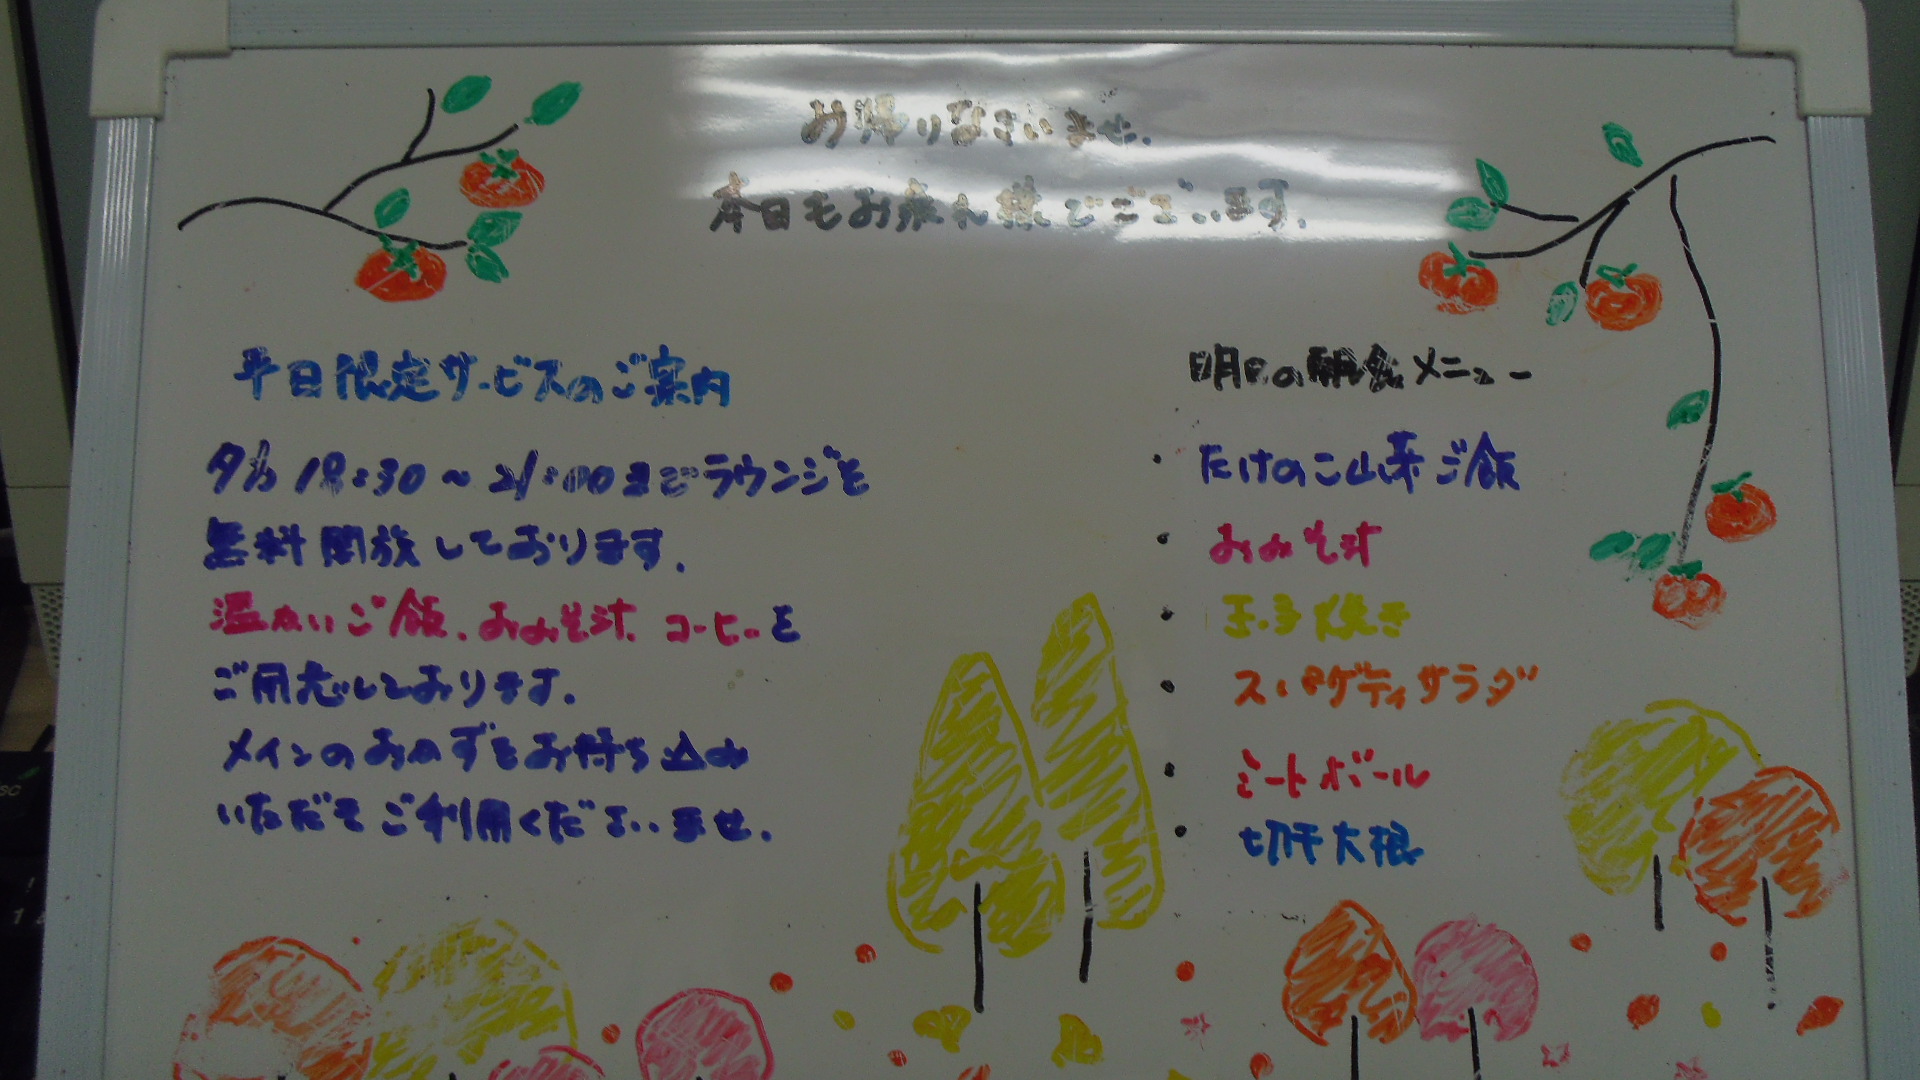 お帰りなさいませ.
本日もお疲れ様でございます.
平日限定サービスのご案内
夕方 18:30～21:00までラウンジを
無料開放しております.
温かいご飯、おみそ汁、コーヒーを
ご用意しております.
メインのおかずをお持ち込み
いただきご利用くださいませ.
明日の朝食メニュー
・たけのこ山菜ご飯
・おみそ汁
・玉子焼き
・スパゲティサラダ
・ミートボール
・切干大根